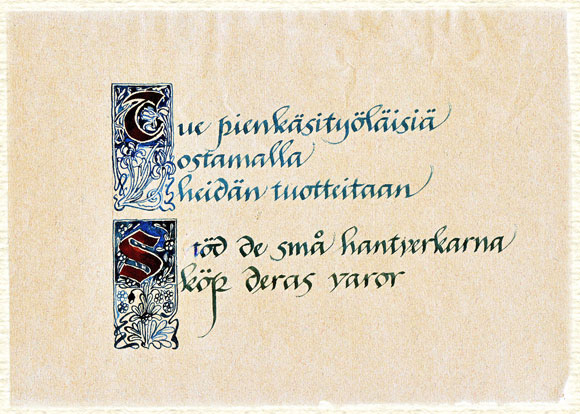 Tue pienkäsityöläisiä
ostamalla
heidän tuotteitaan
Stöd de små hantverkarna
köp deras varor